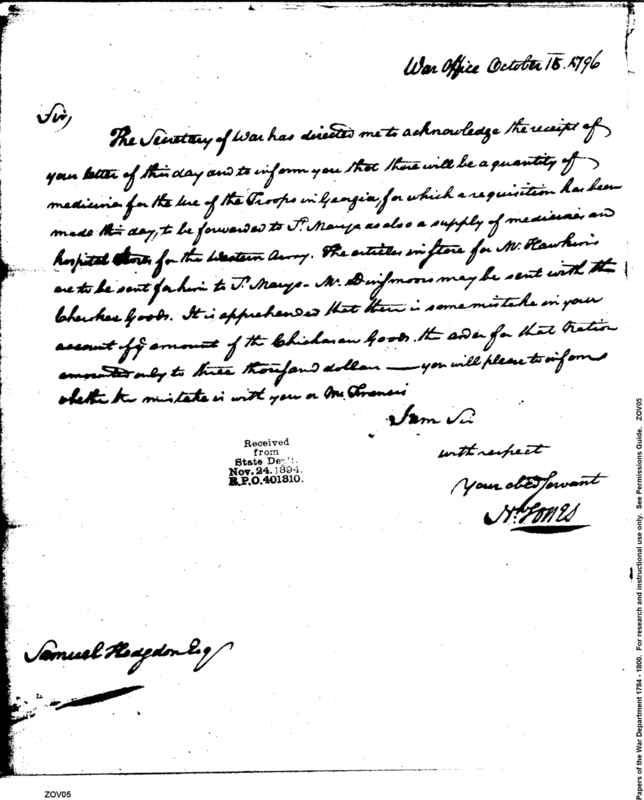 War Office October 15. 1796
Sir,
The Secretary of War has directed me to acknowledge the receipt of
your letter of this day and to inform you that there will be a quantity of
medicines for the use of the Troops in Georgia, for which a requisition has been
made this day, to be forwarded to St. Marys as also a supply of medicines and
hospital Stores for the Western Army. The articles in Store for Mr. Hawkins
are to be sent for him to St. Marys - Mr. Dinsmoors may be sent with the
Cherokee Goods. It is apprehended that there is some mistake in your
account of ye amount of the Chickasaw Goods. the order for that Nation
amounted only to three thousand dollars — you will please to inform
whether the mistake is with you or Mr. Francis
I am Sir
with respect
Your obed Servant
Jones
Received
from
State Dep't.
Nov. 24. 1894.
R.P.O. 401310.
Samuel Hodgdon Esq
ZOV05
Papers of the War Department 1784 - 1800. For research and instructional use only. See Permissions Guide. ZOV05